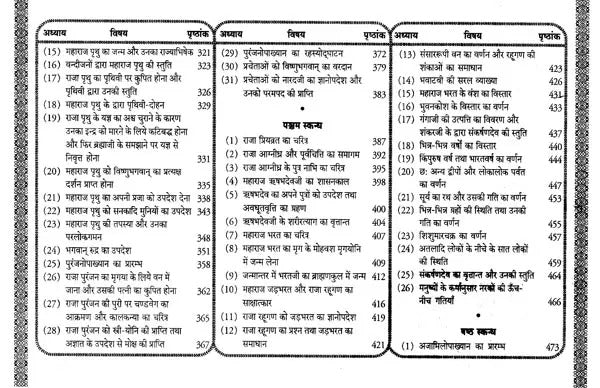 अध्याय विषय पृष्ठांक
(15) महाराज पृथु का जन्म और उनका राज्याभिषेक 321
(16) वन्दीजनों द्वारा महाराज पृथु की स्तुति 323
(17) राजा पृथु का पृथिवी पर कुपित होना और
पृथिवी द्वारा उनकी स्तुति 326
(18) महाराज पृथु के द्वारा पृथिवी-दोहन 329
(19) राजा पृथु के यज्ञ का अश्व चुराने के कारण
उनका इन्द्र को मारने के लिये कटिबद्ध होना
और फिर ब्रह्माजी के समझाने पर यज्ञ से
निवृत्त होना 331
(20) महाराज पृथु को विष्णुभगवान् का प्रत्यक्ष
दर्शन प्राप्त होना 335
(21) महाराज पृथु का अपनी प्रजा को उपदेश देना 338
(22) महाराज पृथु को सनकादि मुनियों का उपदेश 343
(23) महाराज पृथु की तपस्या और उनका
परलोकगमन 348
(24) भगवान् रुद्र का उपदेश 351
(25) पुरंजनोपाख्यान का प्रारम्भ 358
(26) राजा पुरंजन का मृगया के लिये वन में
जाना और उसकी पत्नी का कुपित होना 362
(27) राजा पुरंजन की पुरी पर चण्डवेग का
आक्रमण और कालकन्या का चरित्र 365
(28) राजा पुरंजन को स्त्री-योनि की प्राप्ति तथा
अज्ञात के उपदेश से मोक्ष की प्राप्ति 367
अध्याय विषय पृष्ठांक
(29) पुरंजनोपाख्यान का रहस्योद्घाटन 372
(30) प्रचेताओं को विष्णुभगवान् का वरदान 379
(31) प्रचेताओं को नारदजी का ज्ञानोपदेश और
उनको परमपद की प्राप्ति 383
पञ्चम स्कन्ध
(1) राजा प्रियव्रत का चरित्र 387
(2) राजा आग्नीध्र और पूर्वचित्ति का समागम 392
(3) राजा आग्नीध्र के पुत्र नाभि का चरित्र 395
(4) महाराज ऋषभदेवजी का शासनकाल 398
(5) ऋषभदेव का अपने पुत्रों को उपदेश तथा
अवधूतवृत्ति का ग्रहण 400
(6) ऋषभदेवजी के शरीरत्याग का वृत्तान्त 404
(7) महाराज भरत का चरित्र 407
(8) महाराज भरत का मृग के मोहवश मृगयोनि
में जन्म लेना 409
(9) जन्मान्तर में भरतजी का ब्राह्मणकुल में जन्म 412
(10) महाराज जड़भरत और राजा रहूगण का
साक्षात्कार 416
(11) राजा रहूगण को जड़भरत का ज्ञानोपदेश 419
(12) राजा रहूगण का प्रश्न तथा जड़भरत का
समाधान 421
अध्याय विषय पृष्ठांक
(13) संसाररूपी वन का वर्णन और रहूगण की
शंकाओं का समाधान 423
(14) भवाटवी की सरल व्याख्या 426
(15) महाराज भरत के वंश का विस्तार 431
(16) भुवनकोश के विस्तार का वर्णन 433
(17) गंगाजी की उत्पत्ति का विवरण और
शंकरजी के द्वारा संकर्षणदेव की स्तुति 437
(18) भिन्न-भिन्न वर्षों का विस्तार 440
(19) किंपुरुष वर्ष तथा भारतवर्ष का वर्णन 444
(20) छः अन्य द्वीपों और लोकालोक पर्वत
का वर्णन 447
(21) सूर्य का रथ और उसकी गति का वर्णन 453
(22) भिन्न-भिन्न ग्रहों की स्थिति तथा उनकी
गति का वर्णन 455
(23) शिशुमारचक्र का वर्णन 457
(24) अतलादि लोकों के नीचे के सात लोकों
की स्थिति 459
(25) संकर्षणदेव का वृत्तान्त और उनकी स्तुति 464
(26) मनुष्यों के कर्मानुसार नरकों की ऊँच-
नीच गतियाँ 466
षष्ठ स्कन्ध
(1) अजामिलोपाख्यान का प्रारम्भ 473